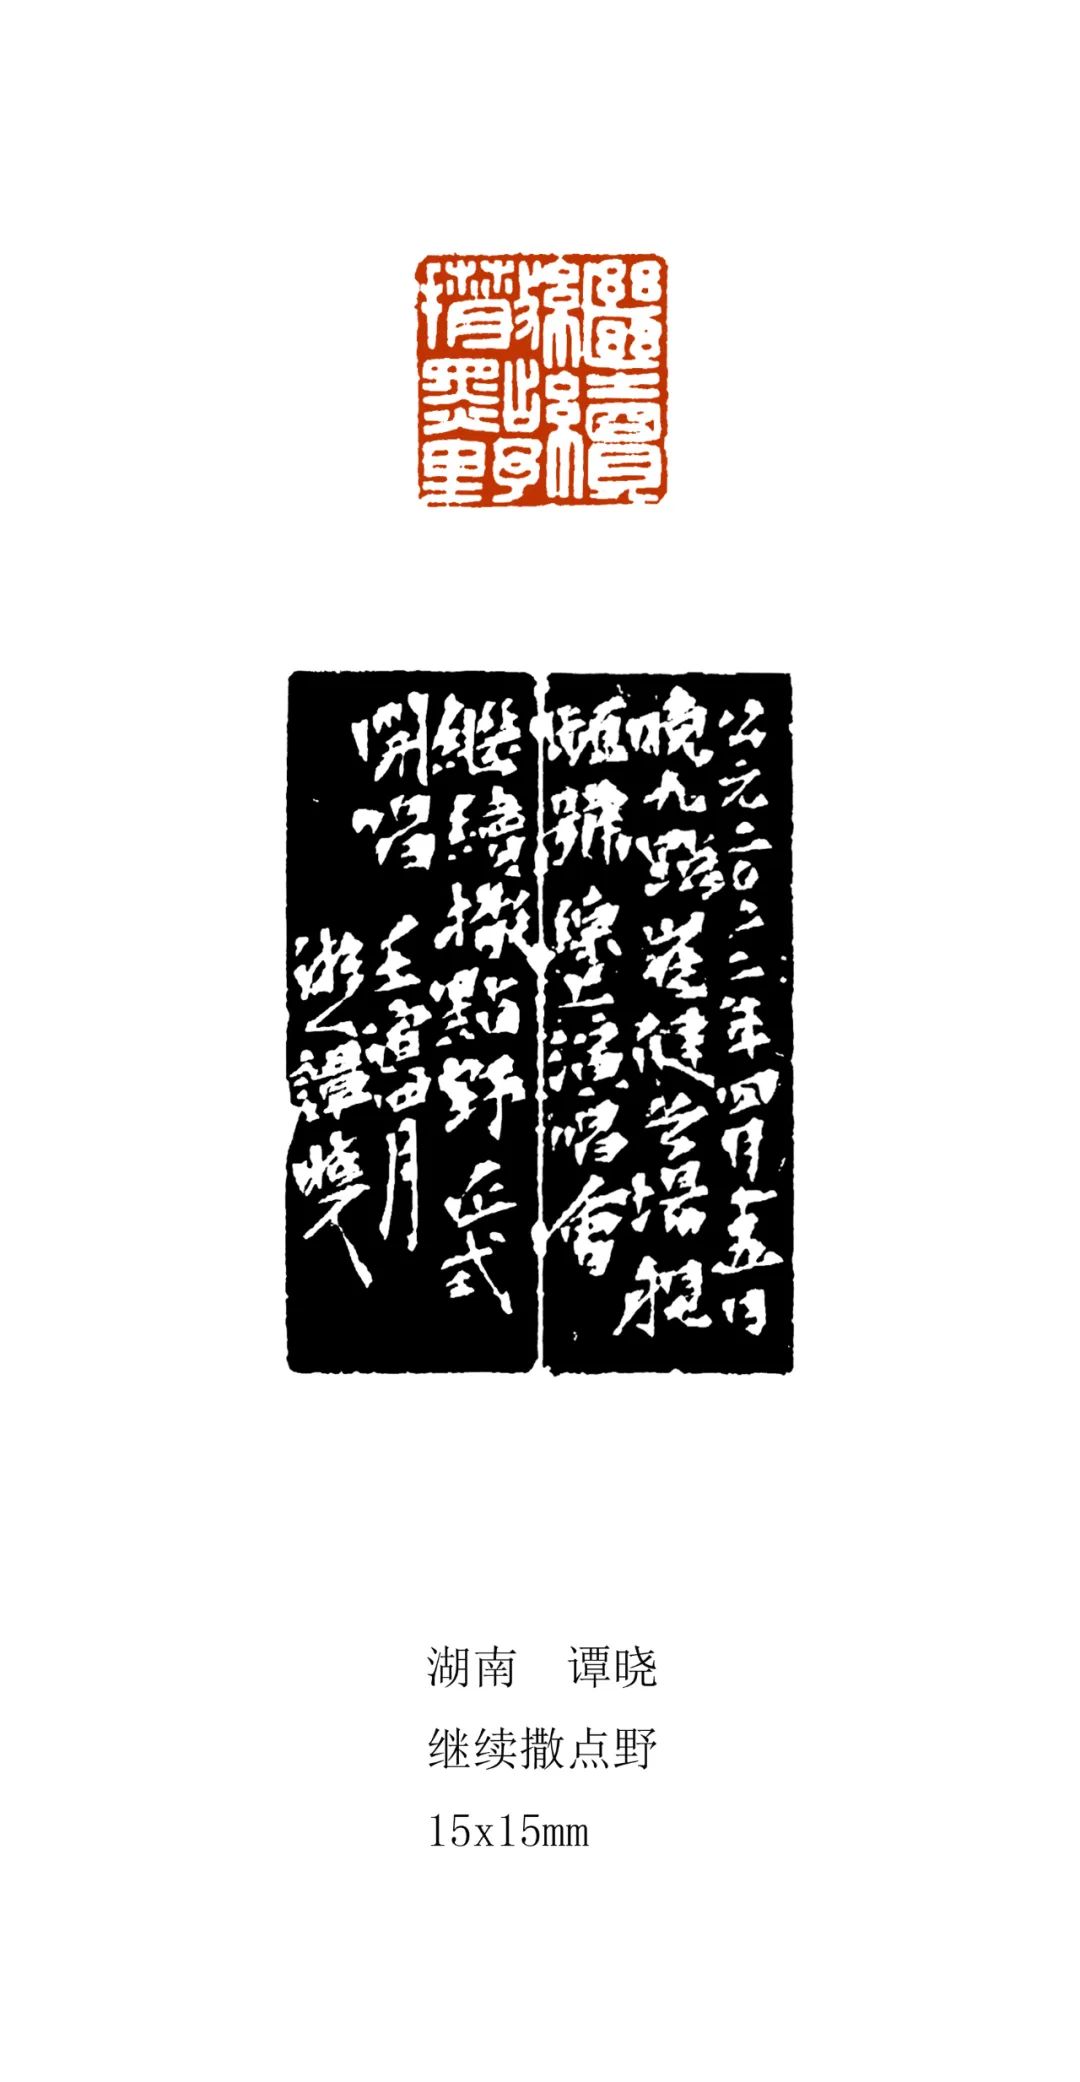 繼續撒點野
公元二〇二二年四月十五日
晚九點崔健首場視
頻號線上演唱會
繼續撒點野正式
開唱
壬寅四月
游之譚曉
湖南 谭晓
继续撒点野
15x15mm